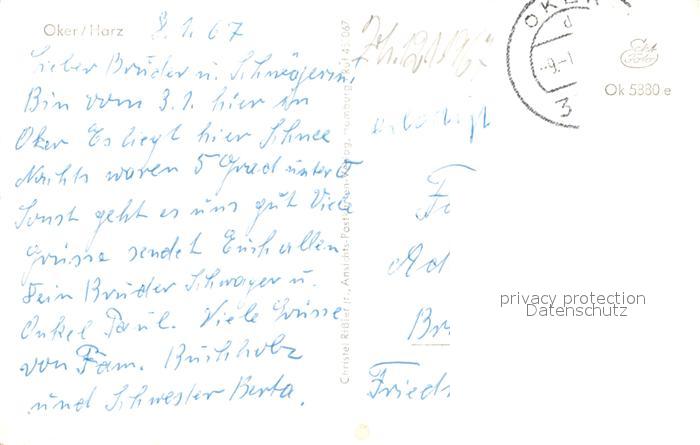 Oker / Harz 8.1.67
Lieber Bruder u. Schwägerin!
Bin vom 3.1. hier in
Oker Es liegt hier Schnee
Nachts waren 5 Grad unter 0
Sonst geht es uns gut Viele
Grüsse sendet Euch allen
Dein Bruder Schwager u.
Onkel Paul. Viele Grüsse
von Fam. Buchholz
und Schwester Berta.
Christel Rißler jr., Ansichts-Postkarten-Verlag,
erledigt
Fa
Ad
Br
Fried
OKER
d
-9.-1
3
Echt Foto
Ok 5880 e
privacy protection
Datenschutz